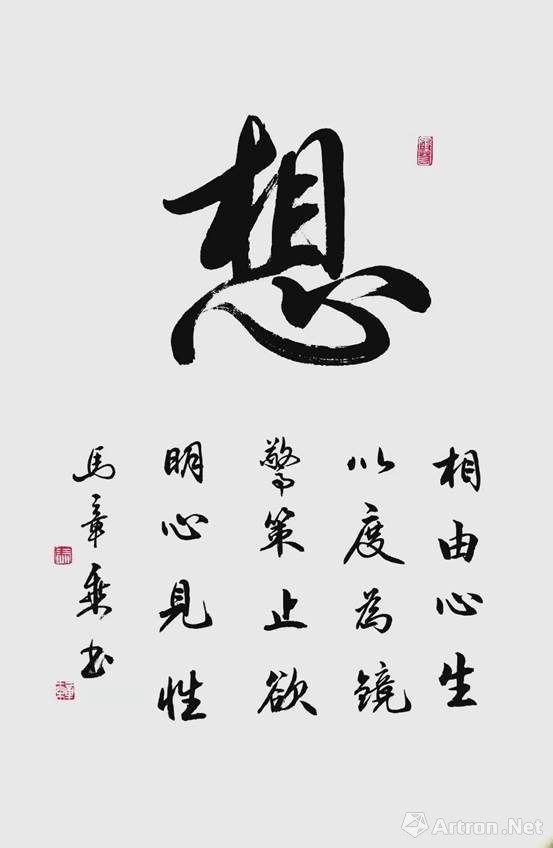 想
相由心生
以度為鏡
警策止欲
明心見性
馬章乘书
Artron.Net